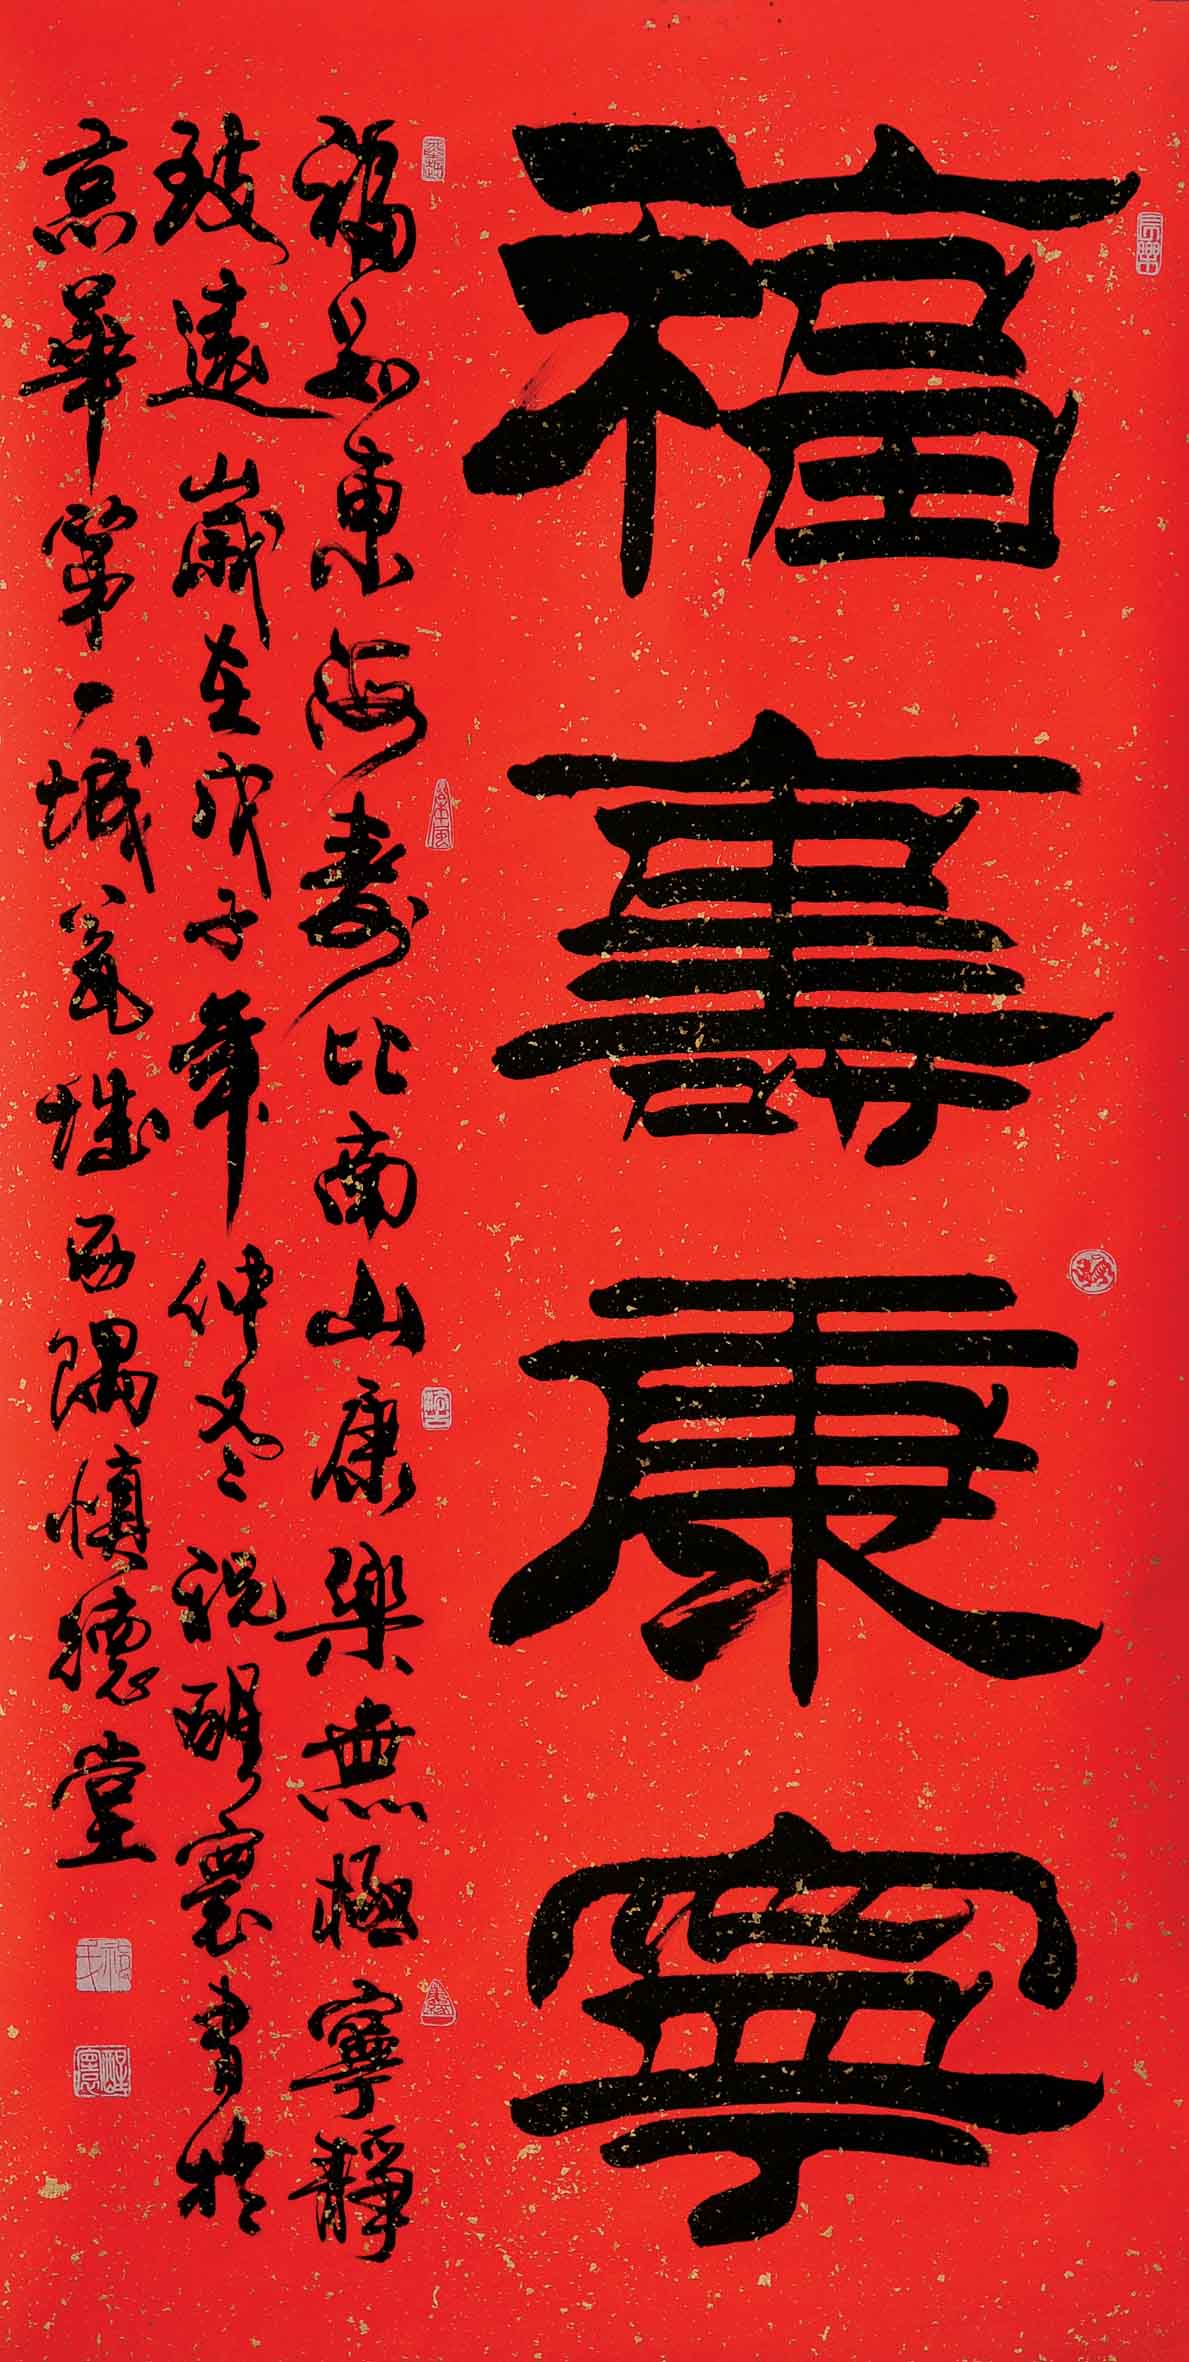 福壽康寧
福如東海壽比南山康樂無極寧靜
致遠歲在戊子年仲冬祝醒寰書於
京華第一城瓮城西隅慎德堂